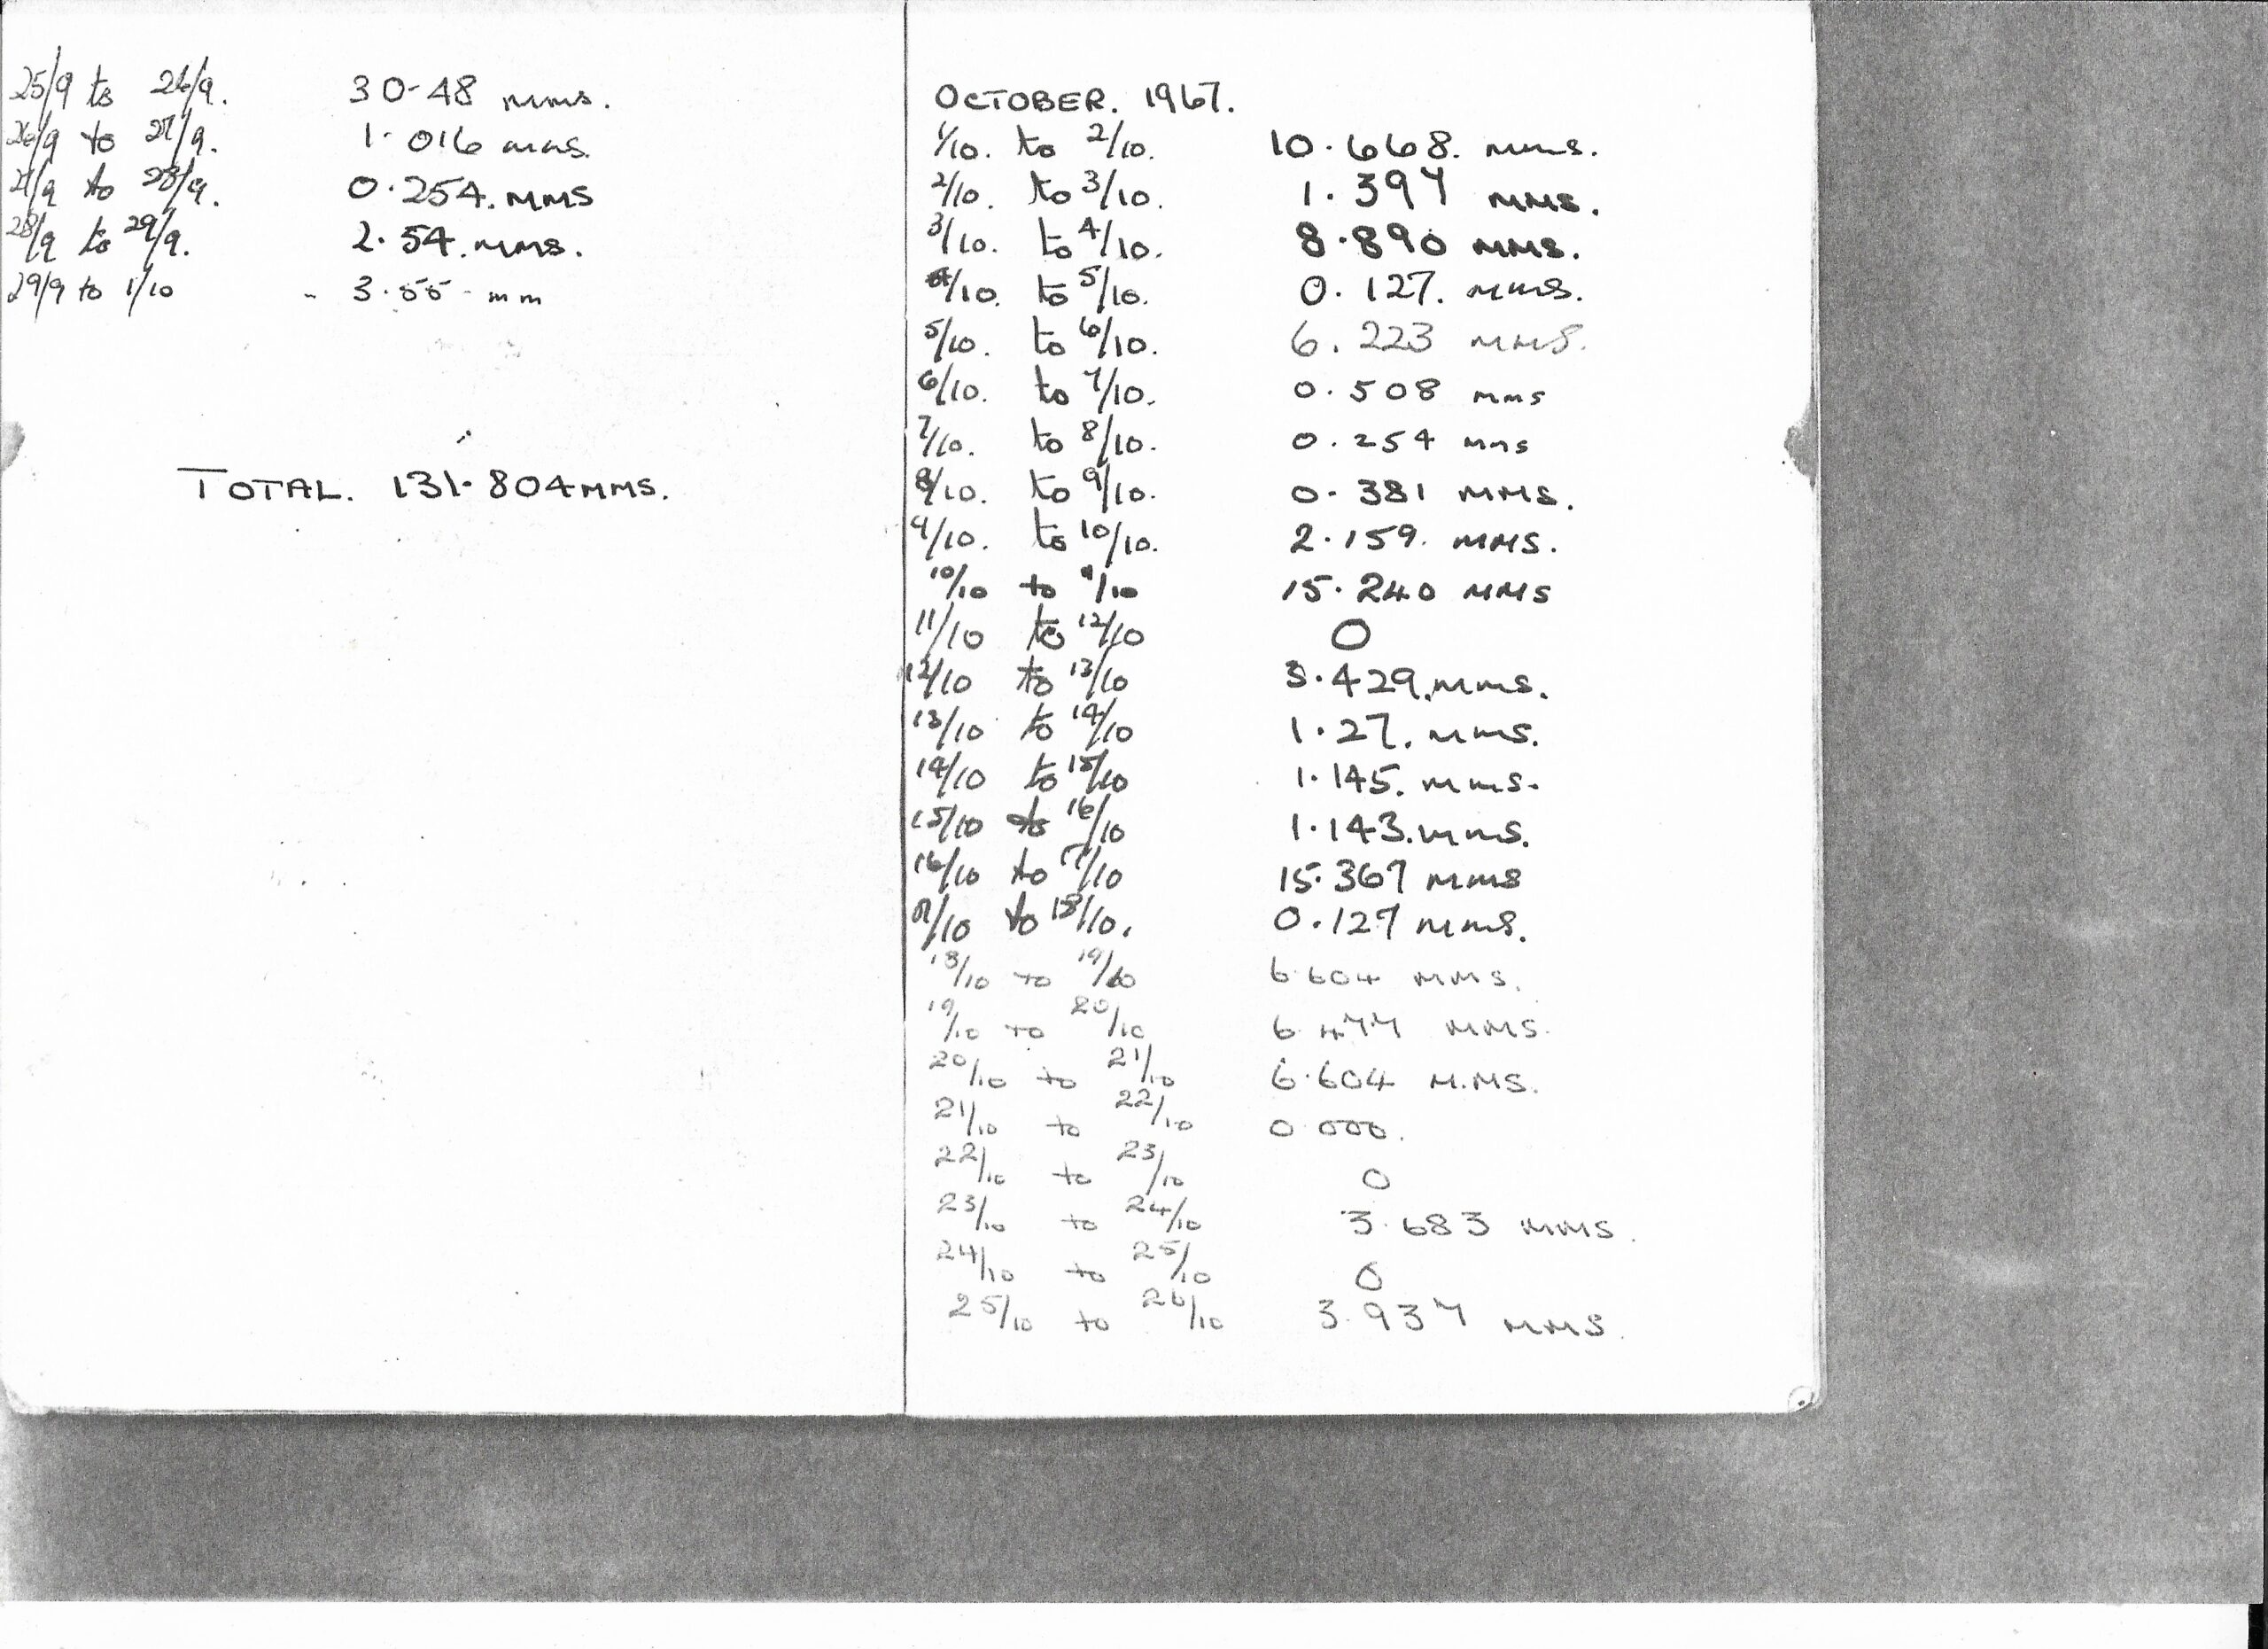 25/9 to 26/9. 30.48 mms.
26/9 to 27/9. 1.016 mms.
27/9 to 28/9. 0.254. MMS
28/9 to 29/9. 2.54. mms.
29/9 to 1/10 - 3.55 - mm
TOTAL. 131.804 MMS.
OCTOBER. 1967.
1/10. to 2/10. 10.668. mms.
2/10. to 3/10. 1.397 MMS.
3/10. to 4/10. 8.890 MMS.
4/10. to 5/10. 0.127. MMS.
5/10. to 6/10. 6.223 MMS.
6/10. to 7/10. 0.508 mms
7/10. to 8/10. 0.254 mms
8/10. to 9/10. 0.381 MMS.
9/10. to 10/10. 2.159. MMS.
10/10 to 11/10 15.240 MMS
11/10 to 12/10 0
12/10 to 13/10 3.429.mms.
13/10 to 14/10 1.27. mms.
14/10 to 15/10 1.145. mms.
15/10 to 16/10 1.143.mms.
16/10 to 17/10 15.367 MMS
17/10 to 18/10. 0.127 mms.
18/10 to 19/10 6.604 MMS.
19/10 to 20/10 6.477 MMS.
20/10 to 21/10 6.604 M.MS.
21/10 to 22/10 0.000.
22/10 to 23/10 0
23/10 to 24/10 3.683 MMS.
24/10 to 25/10 0
25/10 to 26/10 3.937 MMS.